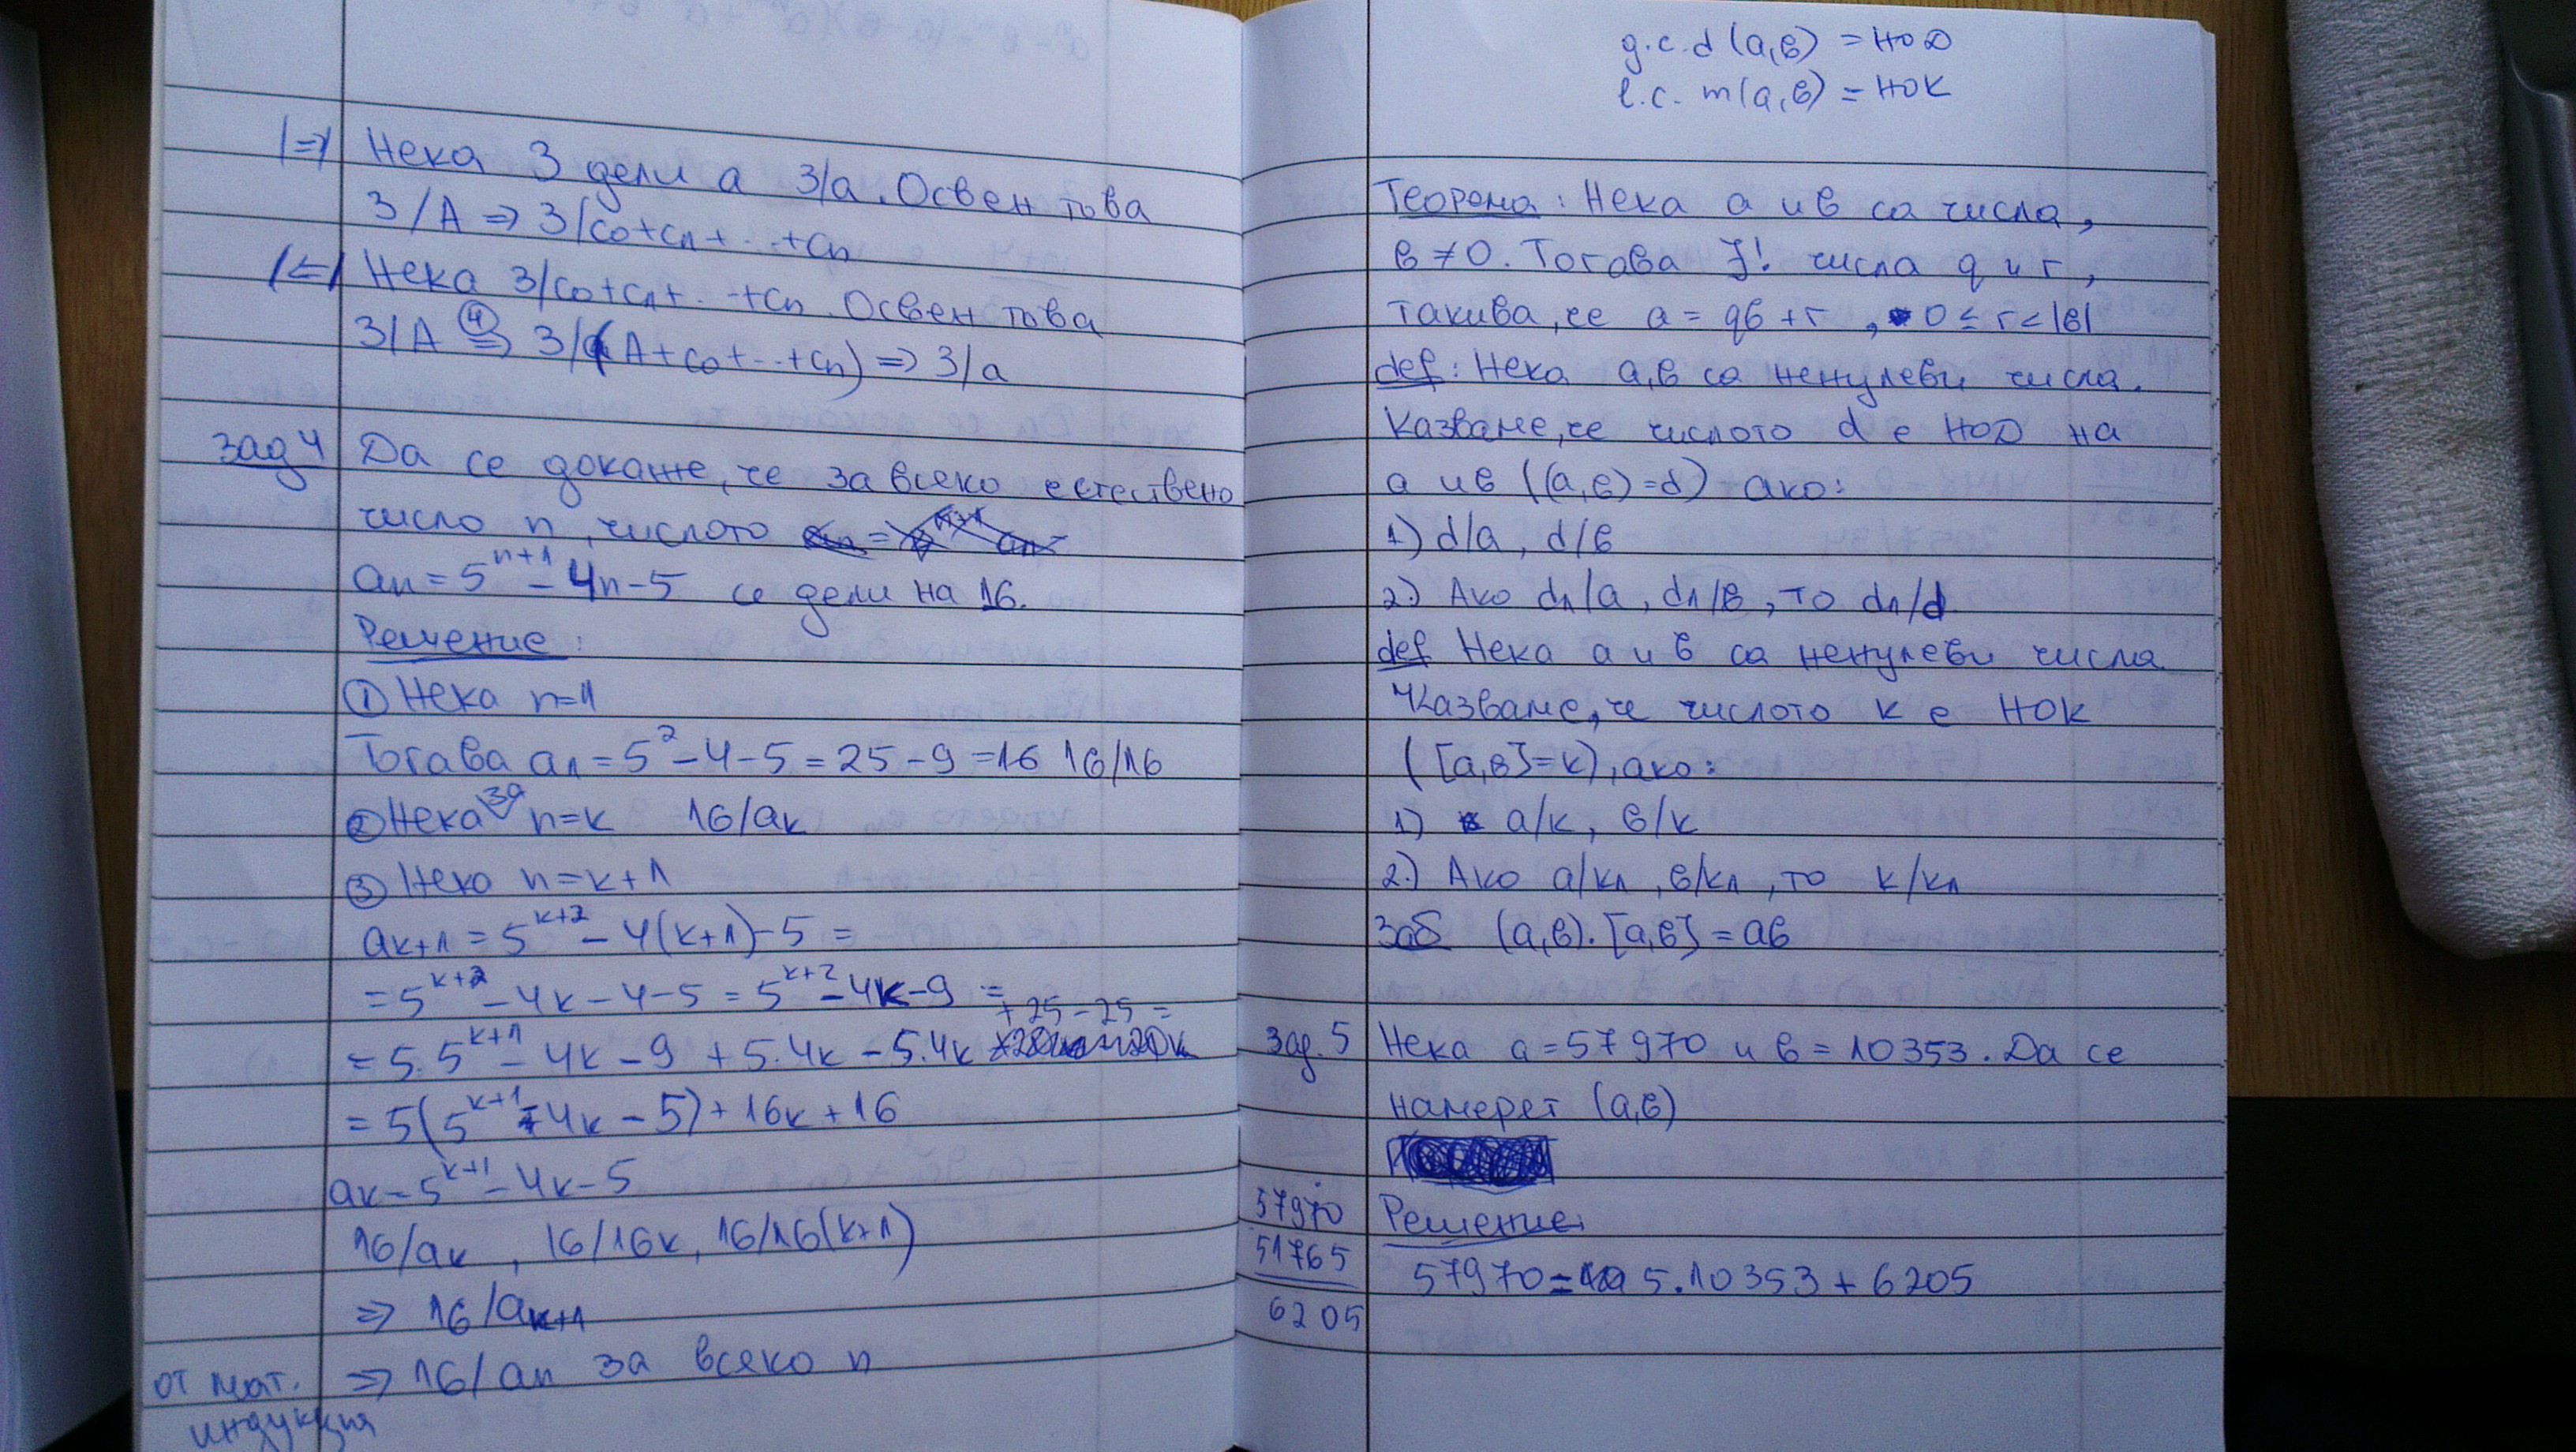 |⇒| Нека 3 дели а 3/a. Освен това
3/A ⇒ 3/c0+c1+...+cn
|⇐| Нека 3/c0+c1+...+cn. Освен това
3/A ④⇒ 3/(A+c0+...+cn) ⇒ 3/a
зад 4 Да се докаже, че за всяко естествено
число n, числото
an = 5^{n+1} - 4n - 5 се дели на 16.
Решение:
① Нека n=1
Тогава a1 = 5^2 - 4 - 5 = 25 - 9 = 16 16/16
② Нека за n=k 16/ak
③ Нека n=k+1
ak+1 = 5^{k+2} - 4(k+1) - 5 =
= 5^{k+2} - 4k - 4 - 5 = 5^{k+2} - 4k - 9 =
+25 - 25 =
= 5.5^{k+1} - 4k - 9 + 5.4k - 5.4k
= 5(5^{k+1} - 4k - 5) + 16k + 16
ak = 5^{k+1} - 4k - 5
16/ak, 16/16k, 16/16(k+1)
⇒ 16/ak+1
от мат. индукция ⇒ 16/an за всяко n
g.c.d (a,b) = НОD
l.c.m(a,b) = НОК
Теорема: Нека a и b са числа,
b ≠ 0. Тогава ∃! числа q и r,
такива, че a = qb + r, 0 ≤ r < |b|
def: Нека a,b са ненулеви числа.
Казваме, че числото d е НОD на
a и b ((a,b)=d) ако:
1) d/a, d/b
2.) Ако d1/a, d1/b, то d1/d
def Нека a и b са ненулеви числа
Казваме, че числото k е НОК
([a,b]=k), ако:
1) a/k, b/k
2.) Ако a/k1, b/k1, то k/k1
Заб (a,b).[a,b] = ab
Зад. 5 Нека a = 57970 и b = 10353. Да се
намерет (a,b)
57970 Решение:
51765
57970 = 5.10353 + 6205
6205